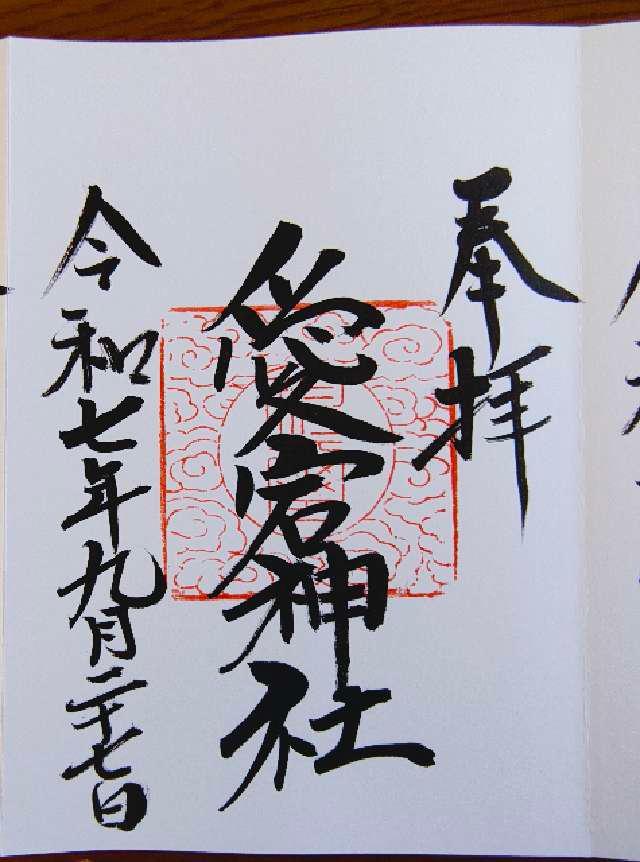 奉拝
愛宕神社
令和七年九月二十七日